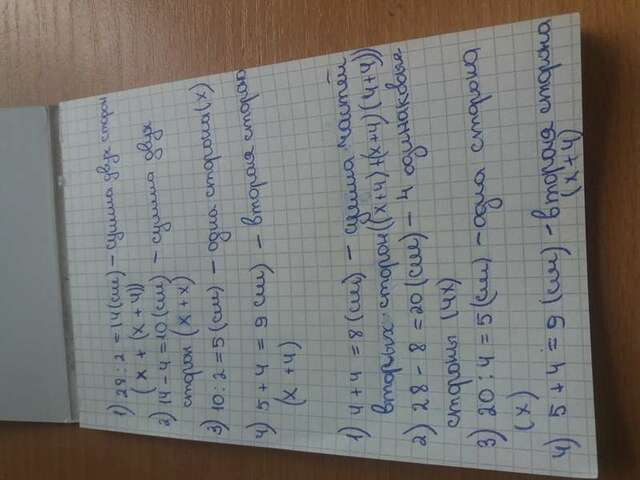 1) 28 : 2 = 14 (см) – сумма двух сторон
(x + (x + 4))
2) 14 - 4 = 10 (см) – сумма двух
сторон (x + x)
3) 10 : 2 = 5 (см) – одна сторона (x)
4) 5 + 4 = 9 см) – вторая сторона
(x + 4)
1) 4 + 4 = 8 (см) – сумма частей
вторых сторон ((x+4)+(x+4) (4+4))
2) 28 - 8 = 20 (см) – 4 одинаковые
стороны (4x)
3) 20 : 4 = 5 (см) – одна сторона
(x)
4) 5 + 4 = 9 (см) – вторая сторона
(x+4)